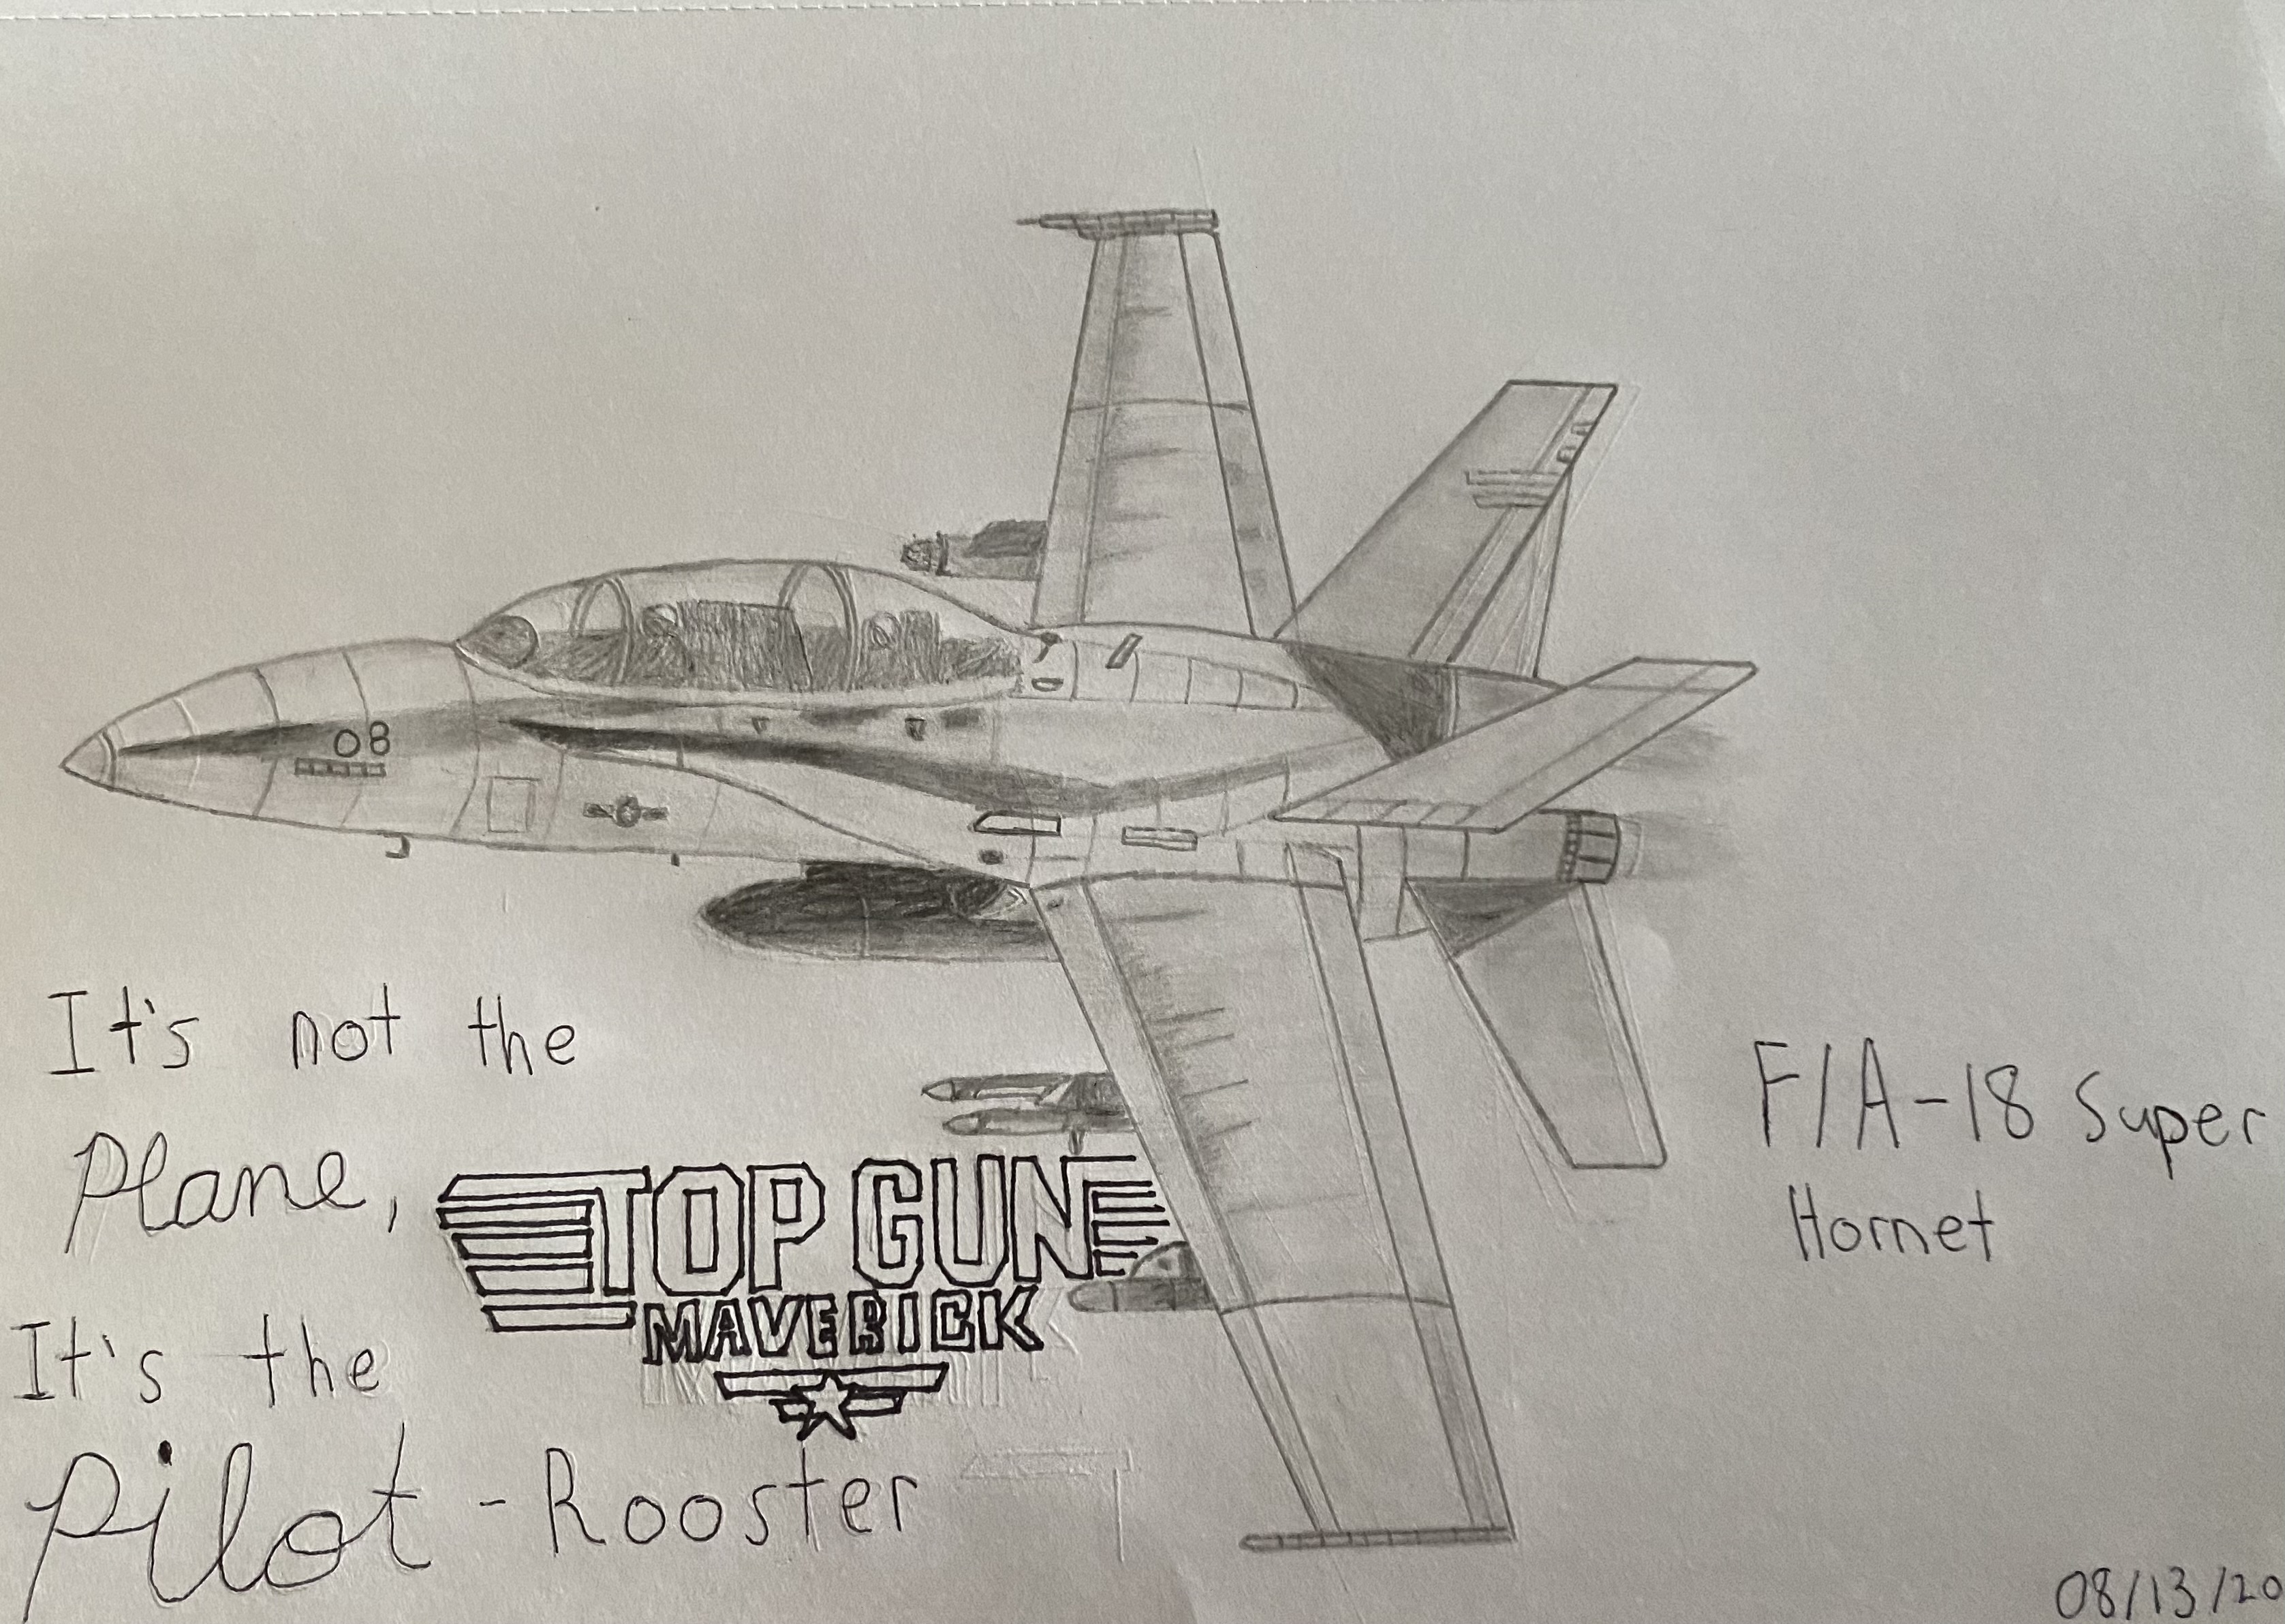 08
It's not the
Plane,
It's the
Pilot - Rooster
TOP GUN
MAVERICK
F/A-18 Super
Hornet
08/13/20